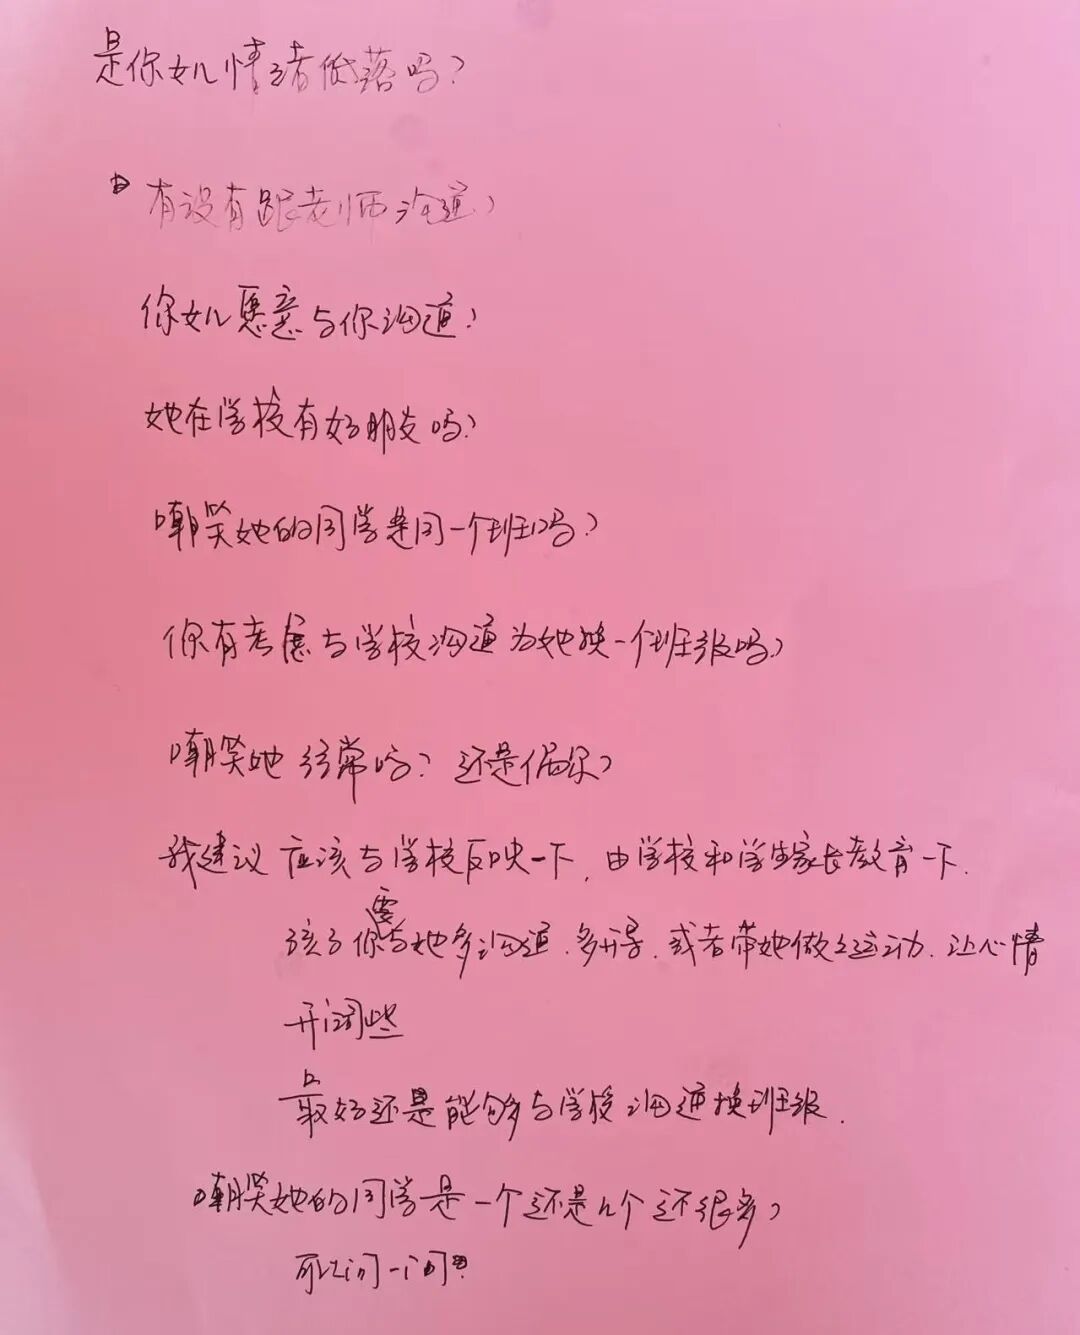 是你女儿情绪低落吗?
有没有跟老师沟通?
你女儿愿意与你沟通?
她在学校有好朋友吗?
嘲笑她的同学是同一个班吗?
你有考虑与学校沟通为她换一个班级吗?
嘲笑她经常吗?还是偶尔?
我建议应该与学校反映一下,由学校和学生家长教育一下.
孩子你需与她多沟通.多开导.或者带她做运动.让心情
开阔些
最好还是能够与学校沟通换班级.
嘲笑她的同学是一个还是几个还很多?
可以问一问?